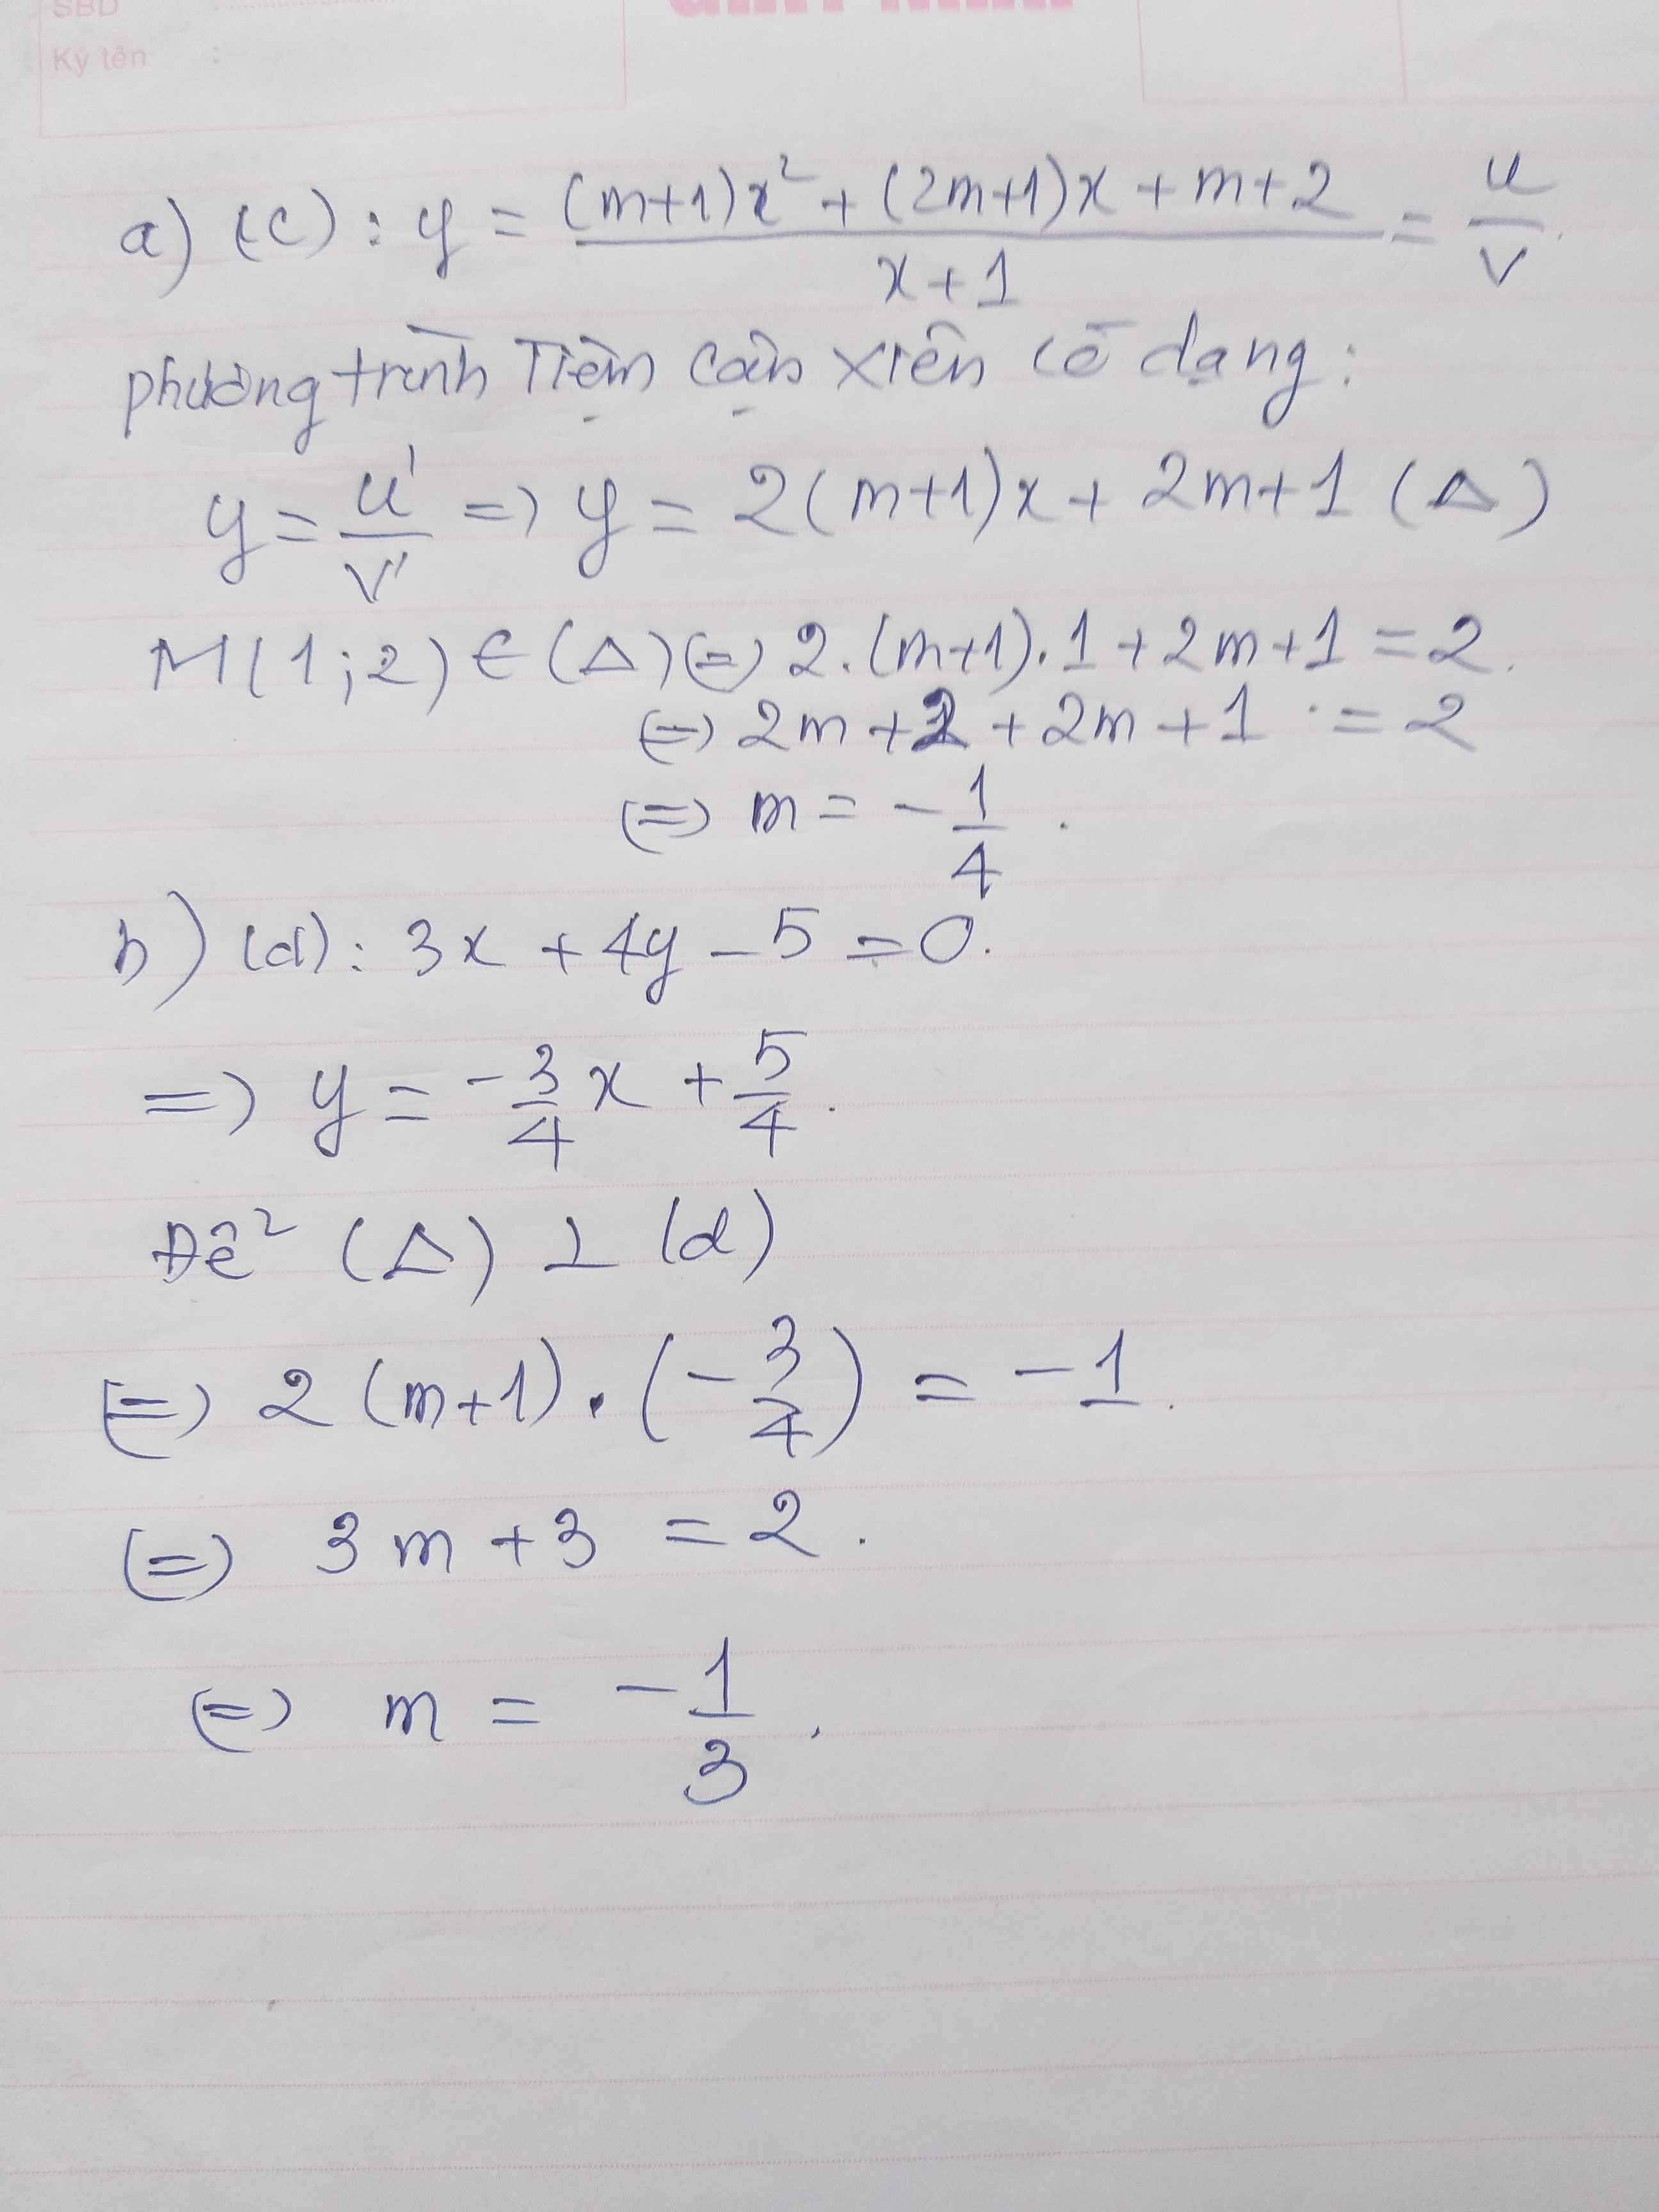 SBD
Ký tên :
a) (C) : y = ((m+1)x² + (2m+1)x + m+2)/(x+1) = u/v.
phương trình Tiệm cận xiên có dạng :
y = u'/v' => y = 2(m+1)x + 2m+1 (Δ)
M(1;2) ∈ (Δ) <=> 2.(m+1).1 + 2m+1 = 2.
<=> 2m + 2 + 2m + 1 = 2
<=> m = -1/4.
b) (d) : 3x + 4y - 5 = 0.
=> y = -3/4x + 5/4.
Để (Δ) ⊥ (d)
<=> 2(m+1).(-3/4) = -1.
<=> 3m + 3 = 2.
<=> m = -1/3.